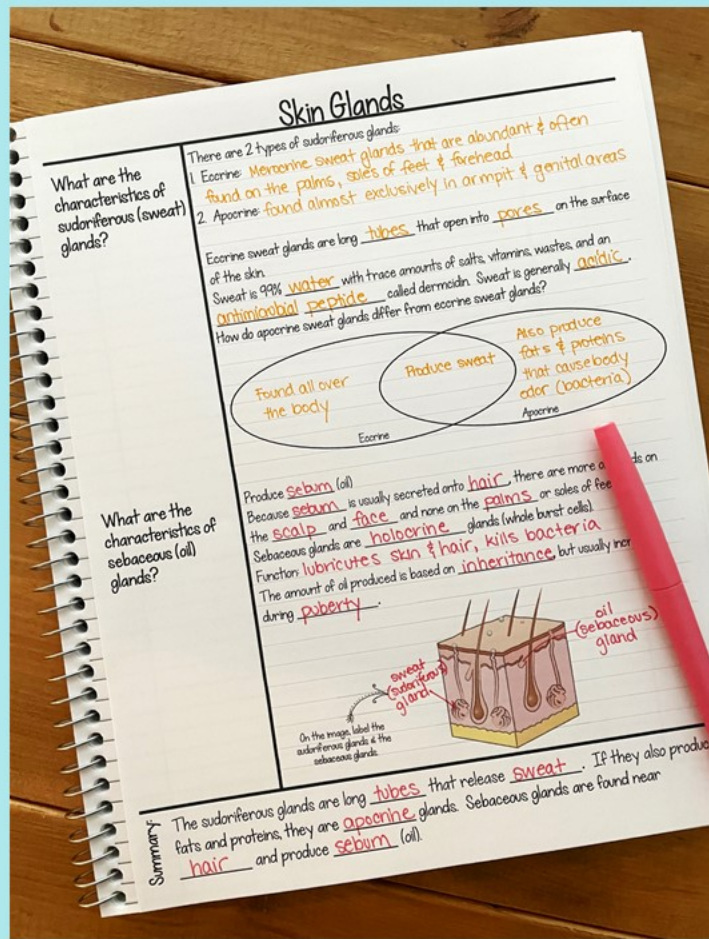 Skin Glands
What are the
characteristics of
sudoriferous (sweat)
glands?
There are 2 types of sudoriferous glands:
1. Eccrine: Merocrine sweat glands that are abundant & often
found on the palms, soles of feet & forehead
2. Apocrine: found almost exclusively in armpit & genital areas
Eccrine sweat glands are long tubes that open into pores on the surface
of the skin.
Sweat is 99% water with trace amounts of salts, vitamins, wastes, and an
antimicrobial peptide called dermcidin. Sweat is generally acidic.
How do apocrine sweat glands differ from eccrine sweat glands?
Found all over
the body
Eccrine
Produce sweat
Also produce
fats & proteins
that cause body
odor (bacteria)
Apocrine
What are the
characteristics of
sebaceous (oil)
glands?
Produce sebum (oil)
Because sebum is usually secreted onto hair, there are more on
the scalp and face and none on the palms or soles of
Sebaceous glands are holocrine glands (whole burst cells).
Function: lubricates skin & hair, kills bacteria
The amount of oil produced is based on inheritance, but usually
during puberty.
sweat
(sudoriferous)
gland
oil
(sebaceous)
gland
On the image, label the
sudoriferous glands & the
sebaceous glands.
Summary:
The sudoriferous glands are long tubes that release sweat. If they also produce
fats and proteins, they are apocrine glands. Sebaceous glands are found near
hair and produce sebum (oil).